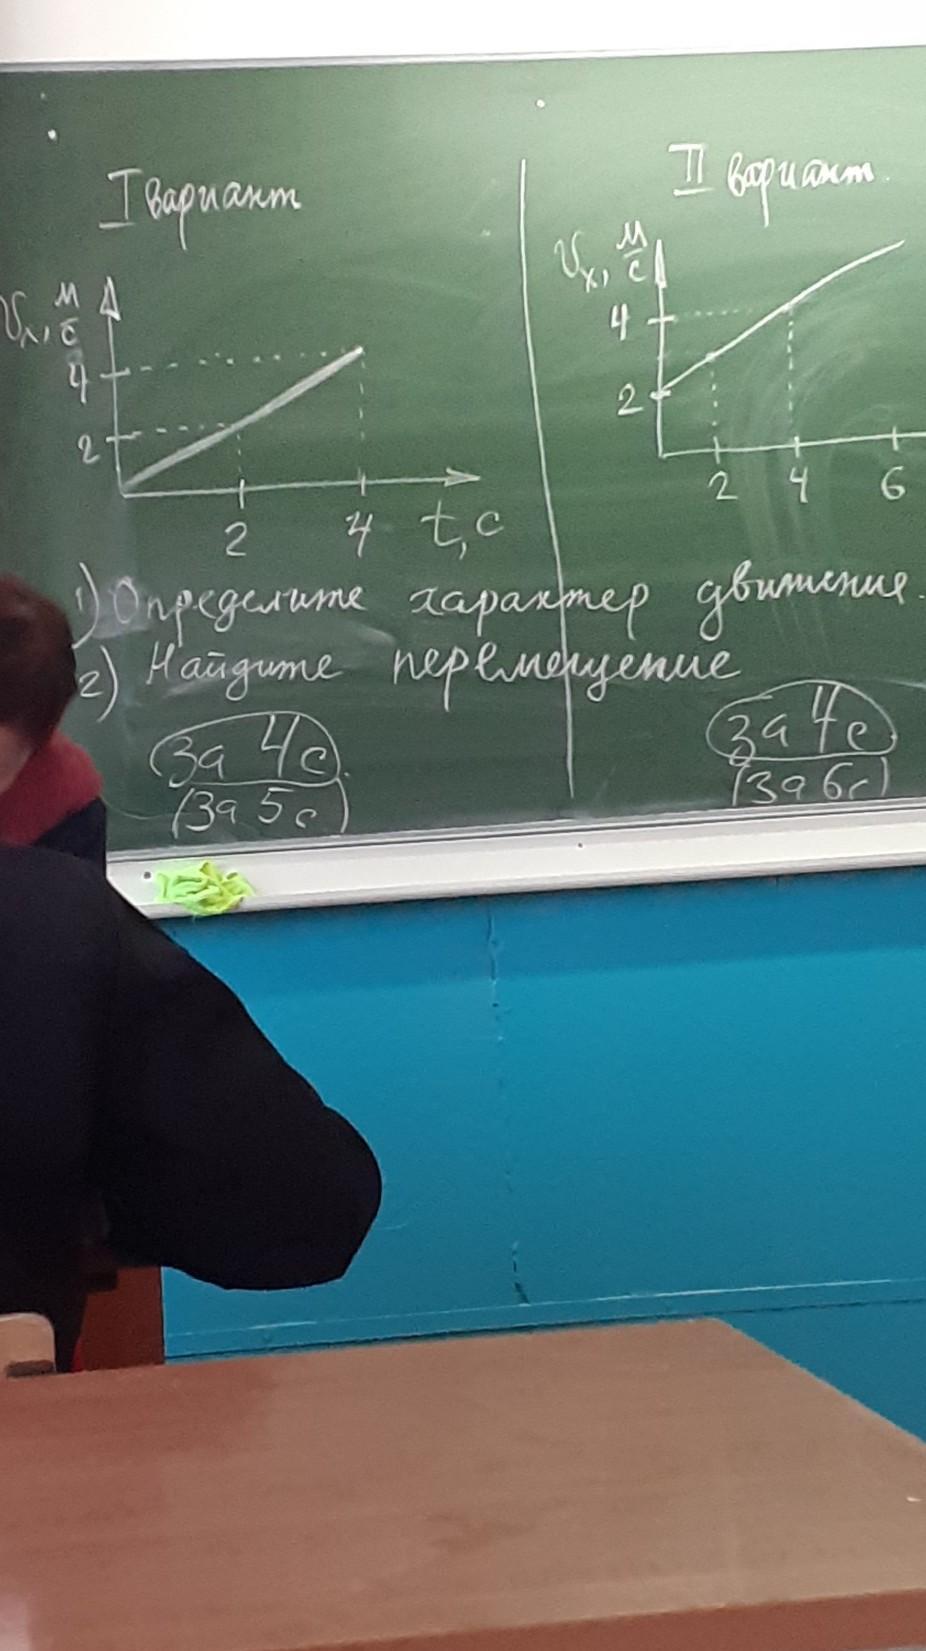 I вариант
II вариант.
υx, м/с
4
2
2 4 t, с
υx, м/с
4
2
2 4 6
1) Определите характер движения.
2) Найдите перемещение
за 4с.
(за 5с)
за 4с.
(за 6с)